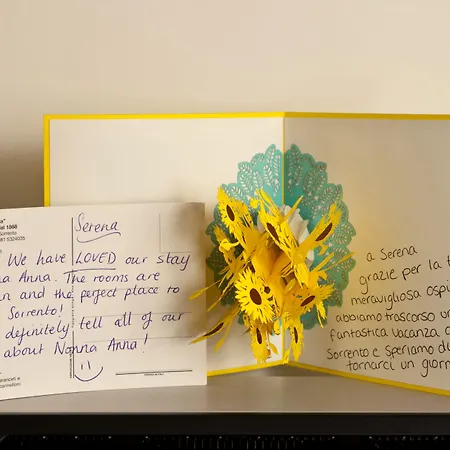 a"
al 1866
Sorrento
81 5324035
Serena
We have LOVED our stay
na Anna. The rooms are
n and the perfect place to
Sorrento!
definitely tell all of our
about Nonna Anna!
a Serena
grazie per la t
meravigliosa ospi
abbiamo trascorso un
fantastica vacanza a
Sorrento e speriamo di
tornarci un giorn